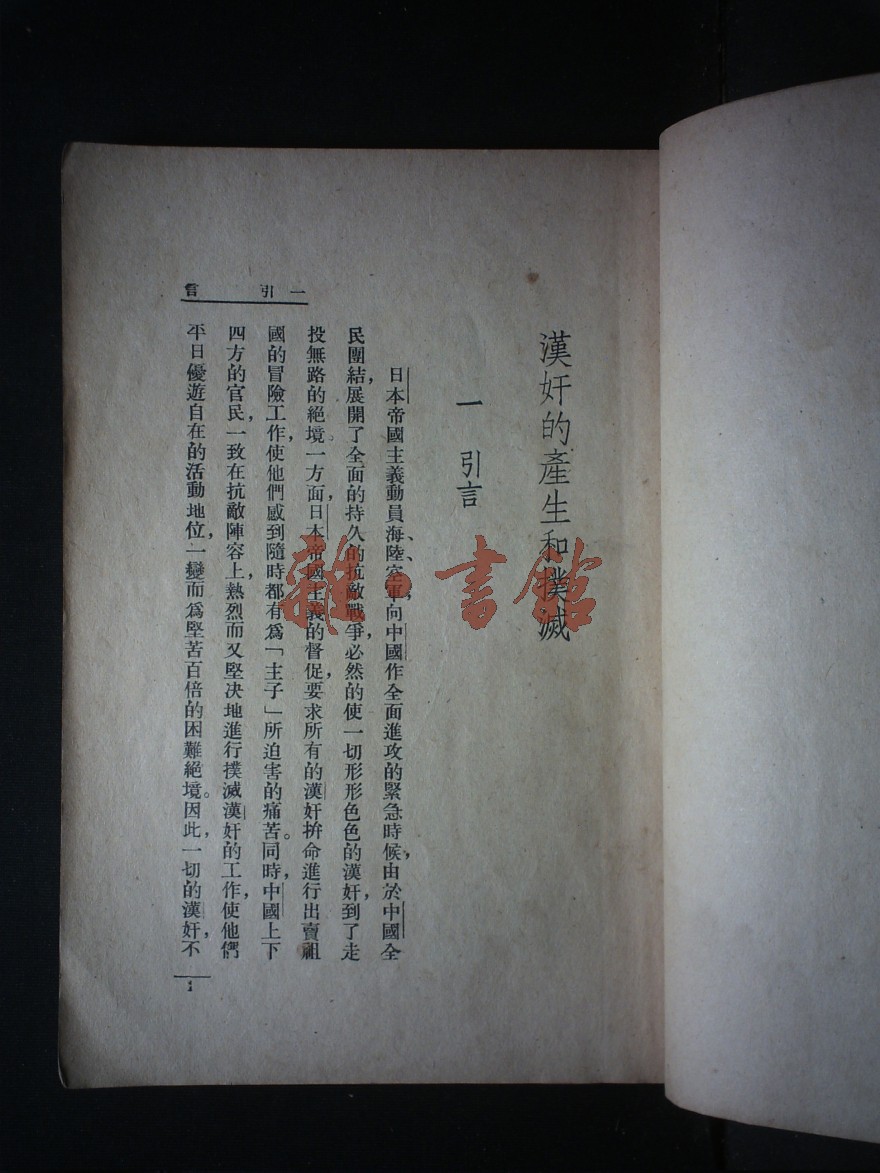 漢奸的產生和撲滅
一 引言
日本帝國主義動員海、陸、空軍，向中國作全面進攻的緊急時候，由於中國全
民團結，展開了全面的持久的抗敵戰爭，必然的使一切形形色色的漢奸，到了走
投無路的絕境。一方面，日本帝國主義的督促，要求所有的漢奸拚命進行出賣祖
國的冒險工作，使他們感到隨時都有爲「主子」所迫害的痛苦。同時，中國上下
四方的官民，一致在抗敵陣容上，熱烈而又堅决地進行撲滅漢奸的工作，使他們
平日優遊自在的活動地位，一變而爲堅苦百倍的困難絕境。因此，一切的漢奸，不
一 引 言
1
雜·書館